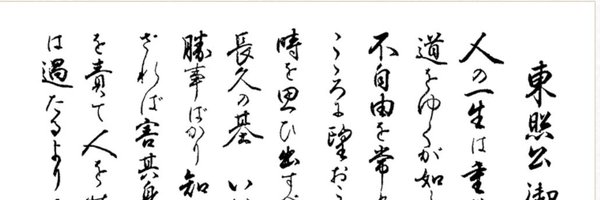 東照公御
人の一生は重
道をゆくが如し
不自由を常
こゝろに望おこ
時を思ひ出すべ
長久の基 い
勝事ばかり知
ざれば害其身
を責て人を
は過たるより